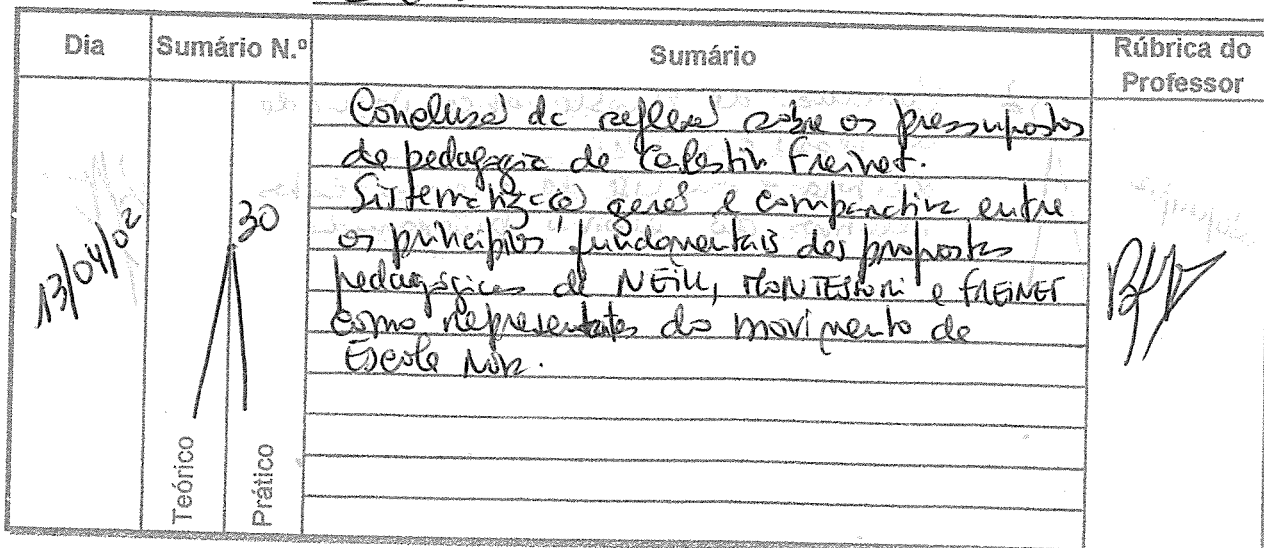 Dia Sumário N.º Sumário Rúbrica do Professor
13/04/02
30
Conclusão da reflexão sobre os pressupostos
da pedagogia de Celestin Freinet.
Sistematização geral e comparativa entre
os princípios fundamentais das propostas
pedagógicas de NEILL, MONTESSORI e FREINET
como representantes do movimento da
Escola Nova.
Teórico
Prático